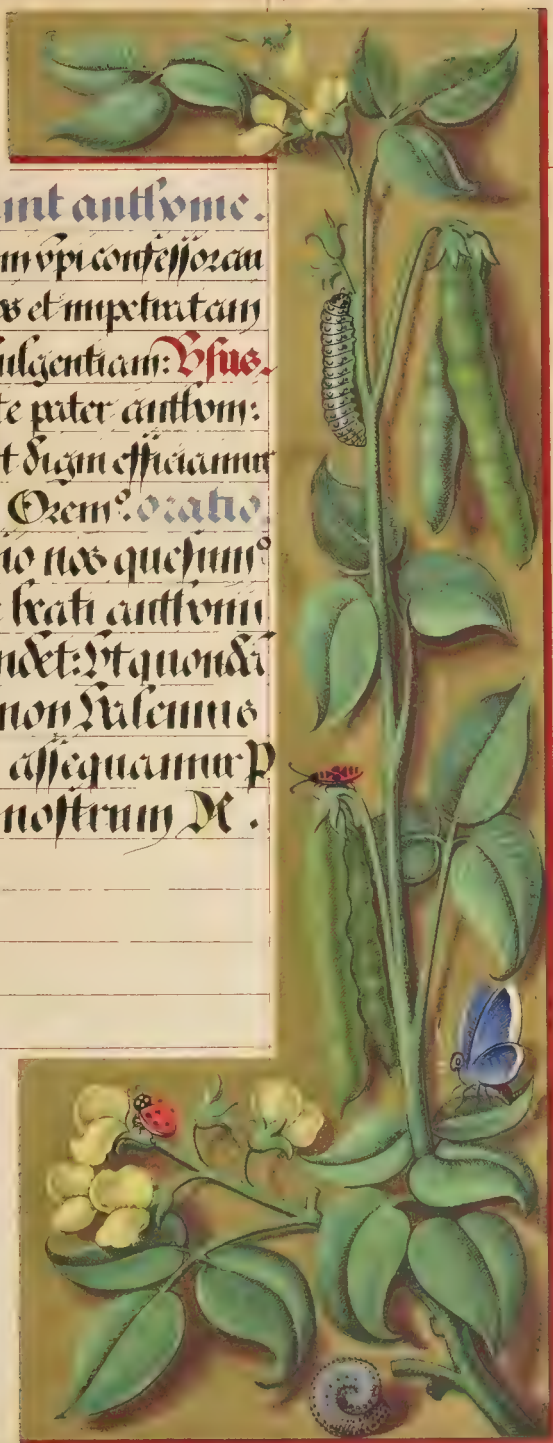 unt anthoine.
m xpi confessorem
os et impetratam
ulgentiam: Vsus.
te pater anthoni:
t digni efficiamur
Oremꝰ. oratio.
io nos quesumꝰ
beati anthonii
ndet: Vt quondã
non valemus
assequamur P
nostrum Dñ.